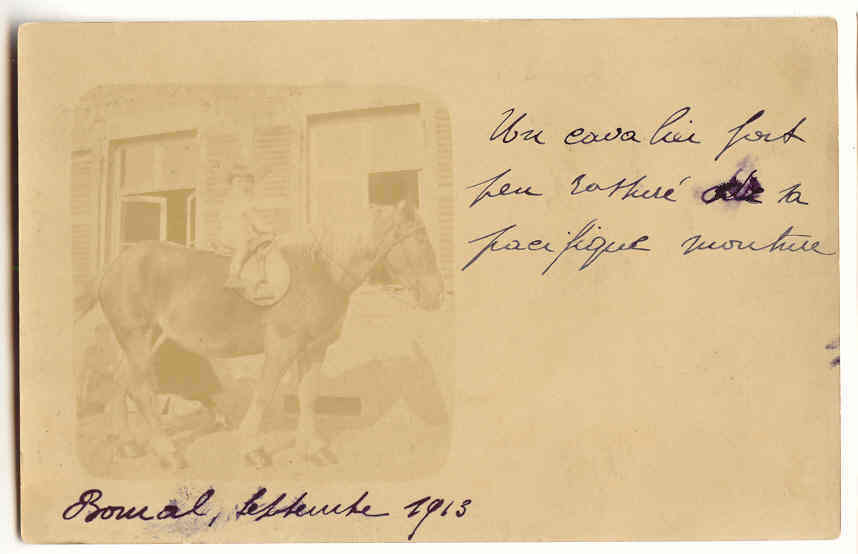 Un cavalier fort
peu rassuré sa
pacifique monture
Bomal, Septembre 1913